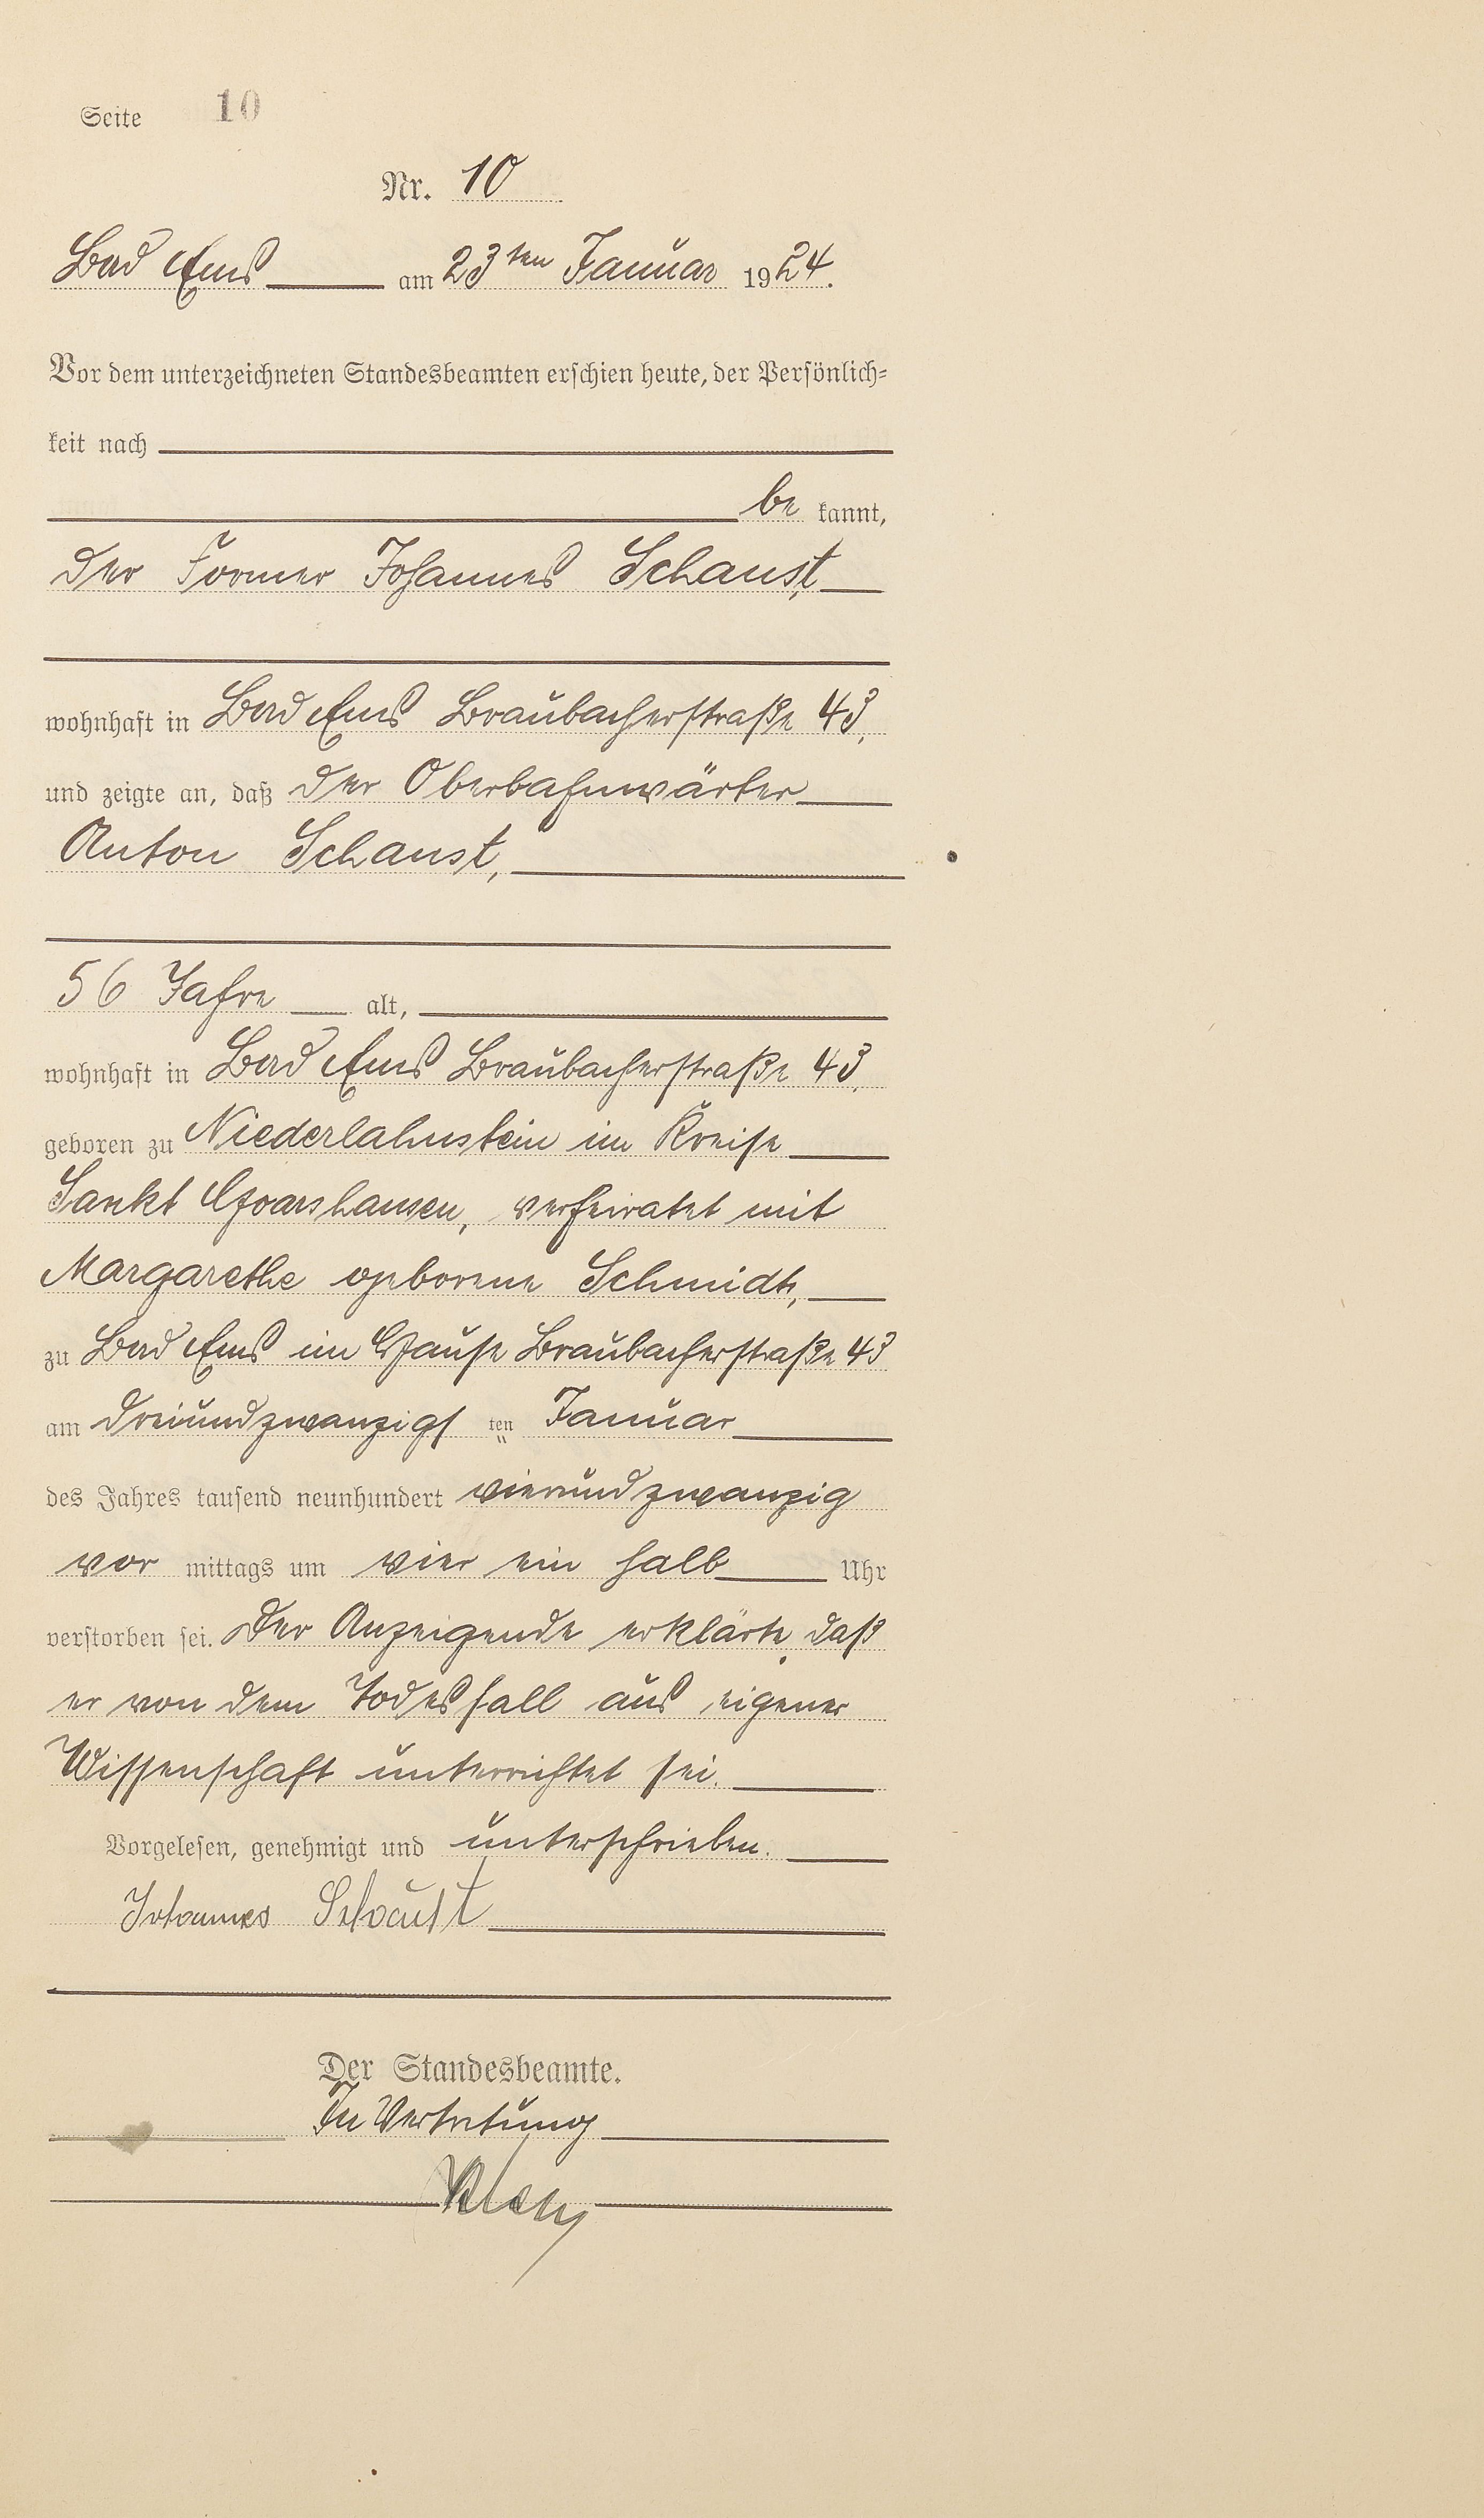 Seite 10
Nr. 10
Bad Ems am 23ten Januar 1924.
Vor dem unterzeichneten Standesbeamten erschien heute, der Persönlich-
keit nach
be kannt,
der Former Johannes Schaust,
wohnhaft in Bad Ems Braubacherstraße 43,
und zeigte an, daß der Oberbahnwärter
Anton Schaust,
56 Jahre alt,
wohnhaft in Bad Ems Braubacherstraße 43,
geboren zu Niederlahnstein im Kreise
Sankt Goarshausen, verheiratet mit
Margarethe geborene Schmidt,
zu Bad Ems im Hause Braubacherstraße 43
am dreiundzwanzigs ten Januar
des Jahres tausend neunhundert vierundzwanzig
vor mittags um vier ein halb Uhr
verstorben sei. Der Anzeigende erklärte, daß
er von dem Todesfall aus eigener
Wissenschaft unterrichtet sei.
Vorgelesen, genehmigt und unterschrieben.
Johannes Schaust
Der Standesbeamte.
In Vertretung